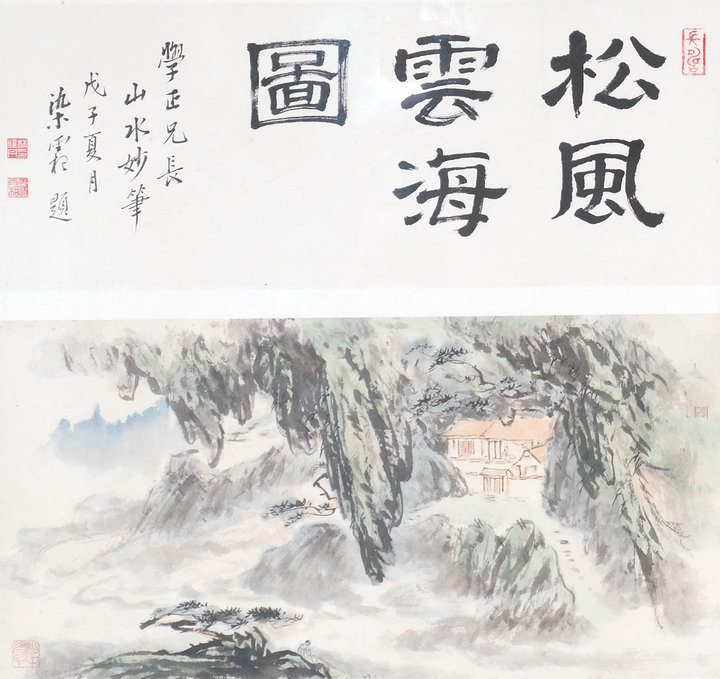 松風
雲海
圖
學正兄長
山水妙筆
戊子夏月
題